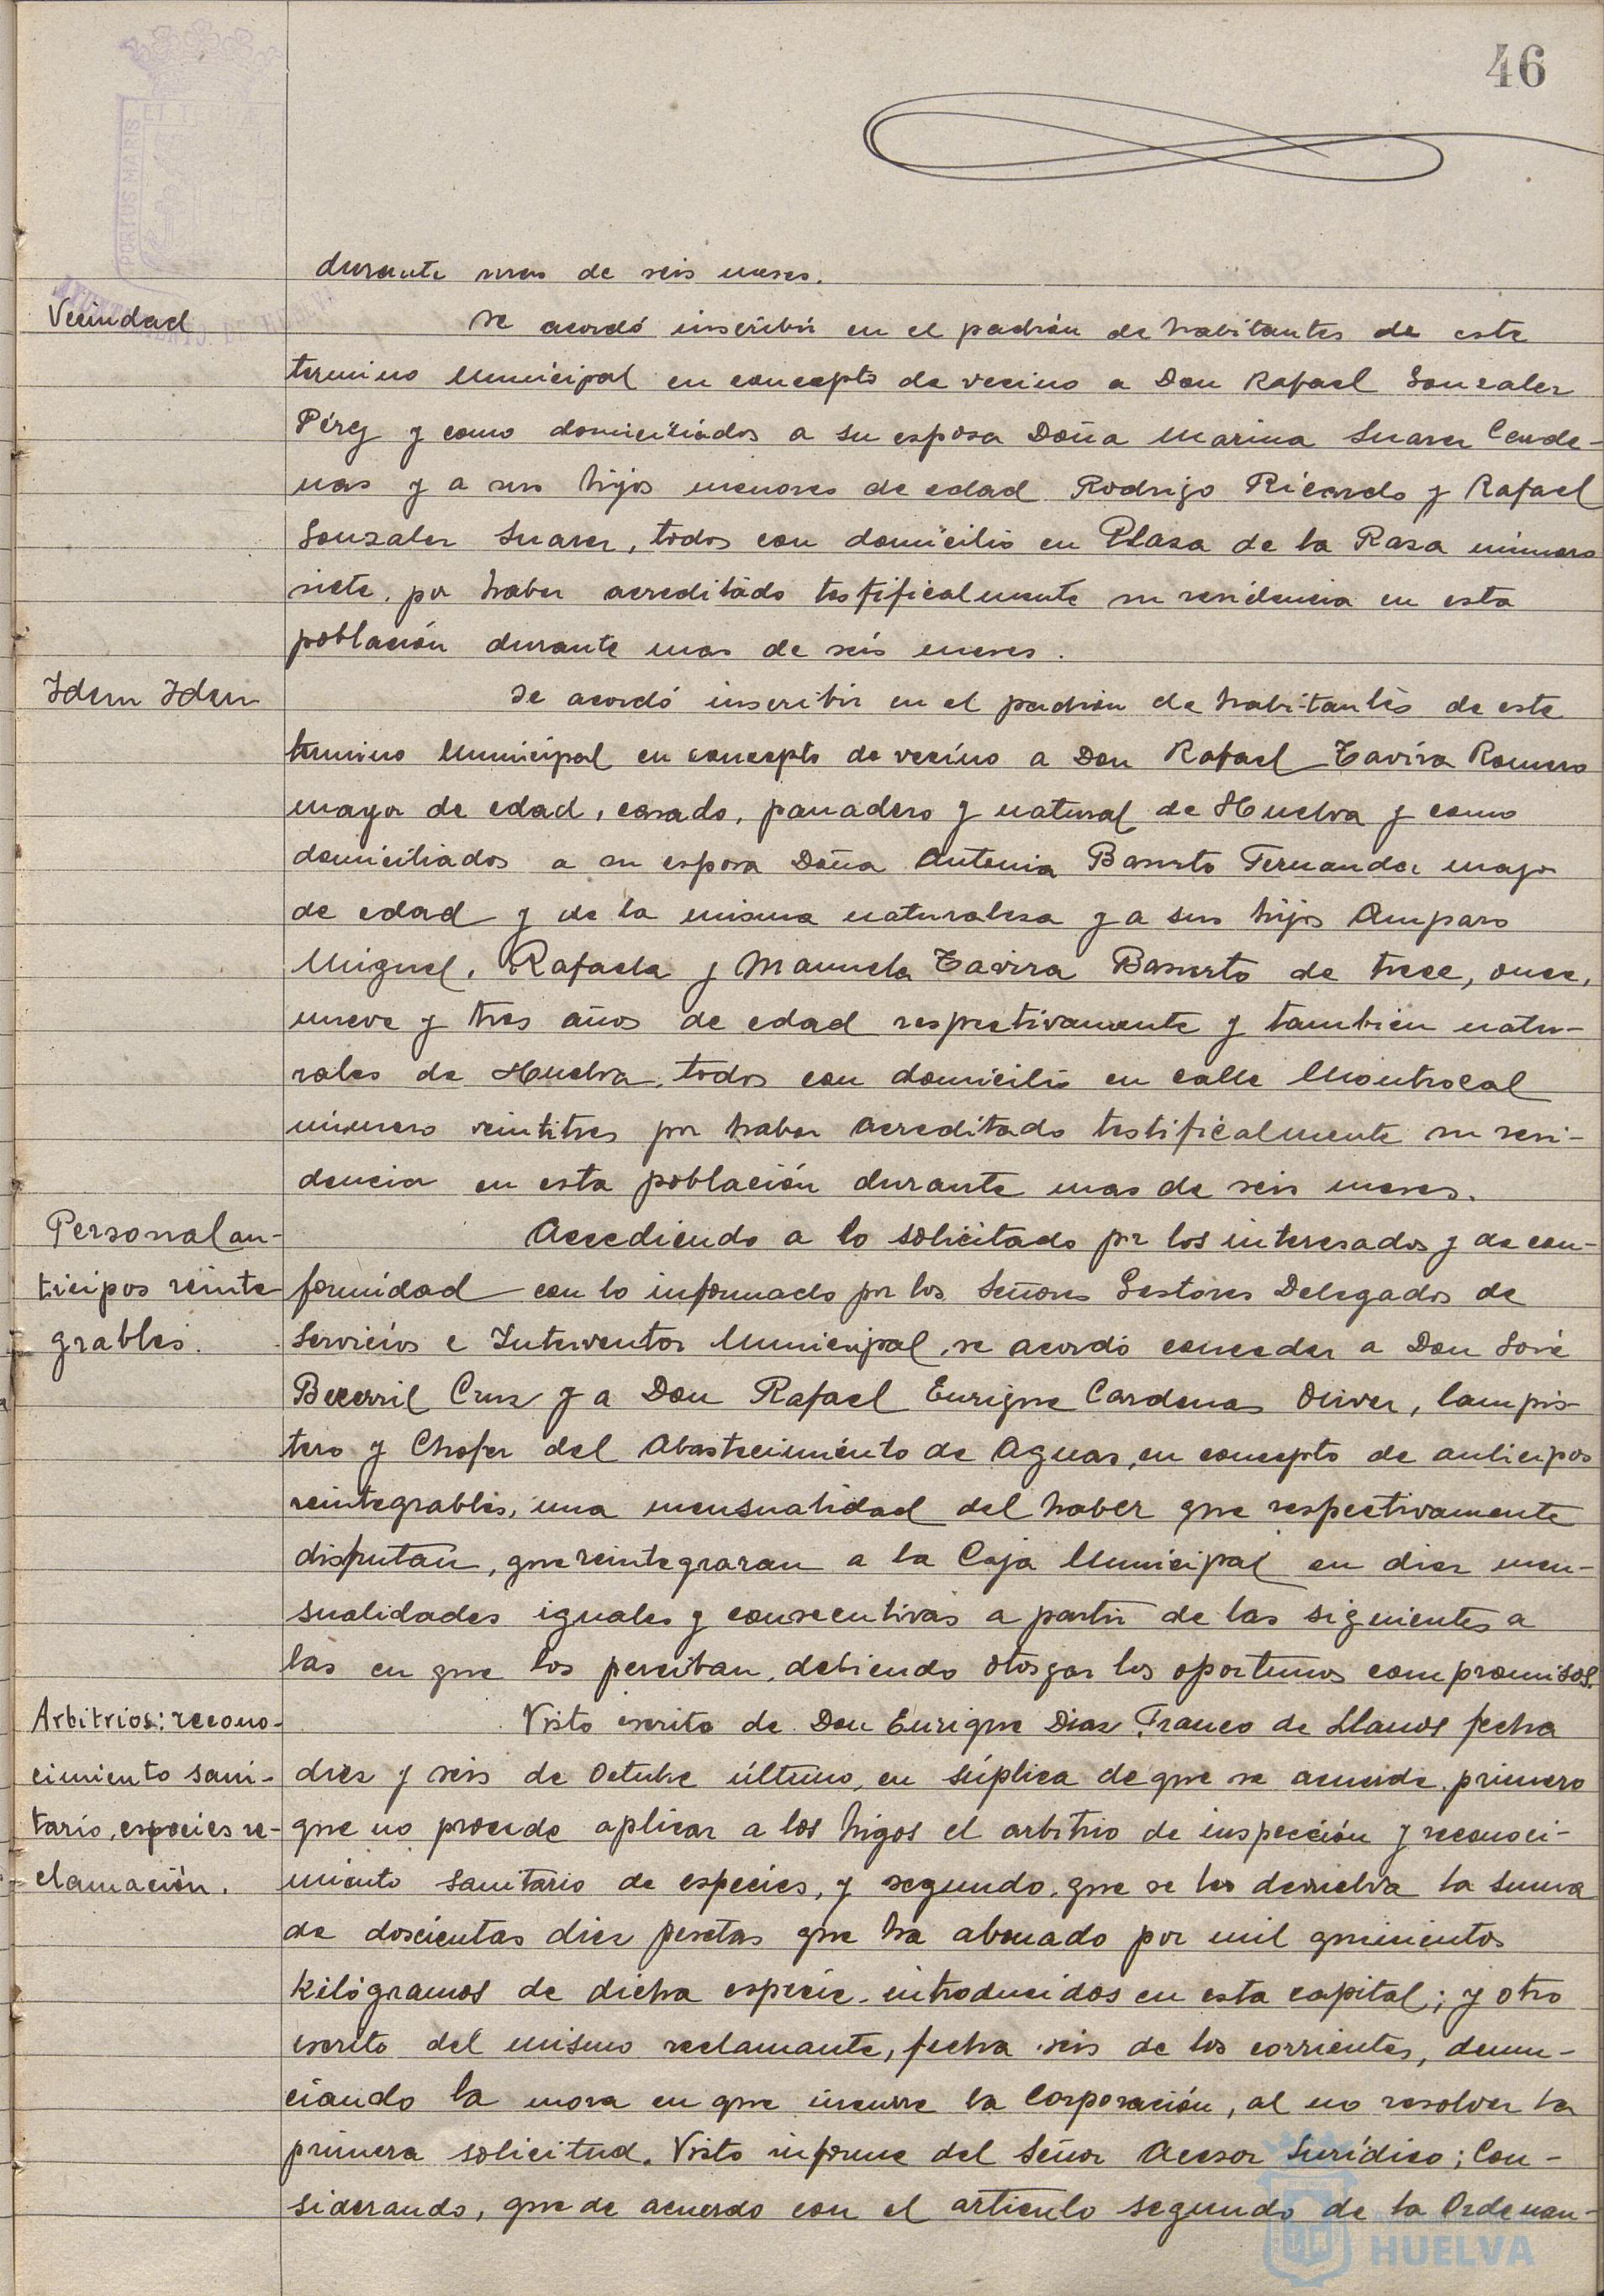 46
durante mas de seis meses.
Vecindad
Se acordó inscribir en el padrón de habitantes de este
termino Municipal en concepto de vecino a Don Rafael Gonzalez
Pérez y como domiciliados a su esposa Doña Marina Suarez Carde-
nas y a sus hijos menores de edad Rodrigo Ricardo y Rafael
Gonzalez Suarez, todos con domicilio en Plaza de la Raza número
siete, por haber acreditado testificalmente su residencia en esta
población durante mas de seis meses.
Idem Idem
Se acordó inscribir en el padrón de habitantes de este
termino Municipal en concepto de vecino a Don Rafael Tavira Romero
mayor de edad, casado, panadero y natural de Huelva y como
domiciliados a su esposa Doña Antonia Basurto Fernandez mayor
de edad y de la misma naturaleza y a sus hijos Amparo
Miguel, Rafaela y Manuela Tavira Basurto de trece, once,
nueve y tres años de edad respectivamente y tambien natu-
rales de Huelva, todos con domicilio en calle Montrocal
número veintitres por haber acreditado testificalmente su resi-
dencia en esta población durante mas de seis meses.
Personal an-
ticipos reinte
grables.
Accediendo a lo solicitado por los interesados y de con-
formidad con lo informado por los Señores Gestores Delegados de
Servicios e Interventor Municipal, se acordó conceder a Don José
Becerril Cruz y a Don Rafael Enrique Cardenas Oliver, lampis-
tero y Chofer del Abastecimiento de Aguas, en concepto de anticipos
reintegrables, una mensualidad del haber que respectivamente
disfrutan, que reintegraran a la Caja Municipal en diez men-
sualidades iguales y consecutivas a partir de las siguientes a
las en que los perciban, debiendo otorgar los oportunos compromisos.
Arbitrios: recono-
cimiento sani-
tario, especies re-
clamación.
Visto escrito de Don Enrique Diaz Franco de Llanos fecha
diez y seis de Octubre último, en súplica de que se acuerde, primero
que no procede aplicar a los higos el arbitrio de inspección y reconoci-
miento sanitario de especies, y segundo, que se les devuelva la suma
de doscientas diez pesetas que ha abonado por mil quinientos
kilógramos de dicha especie introducidos en esta capital; y otro
escrito del mismo reclamante, fecha seis de los corrientes, denun-
ciando la mora en que incurre la Corporación, al no resolver la
primera solicitud. Visto informe del Señor Acesor Jurídico; Con-
siderando, que de acuerdo con el articulo segundo de la Ordenan-
HUELVA